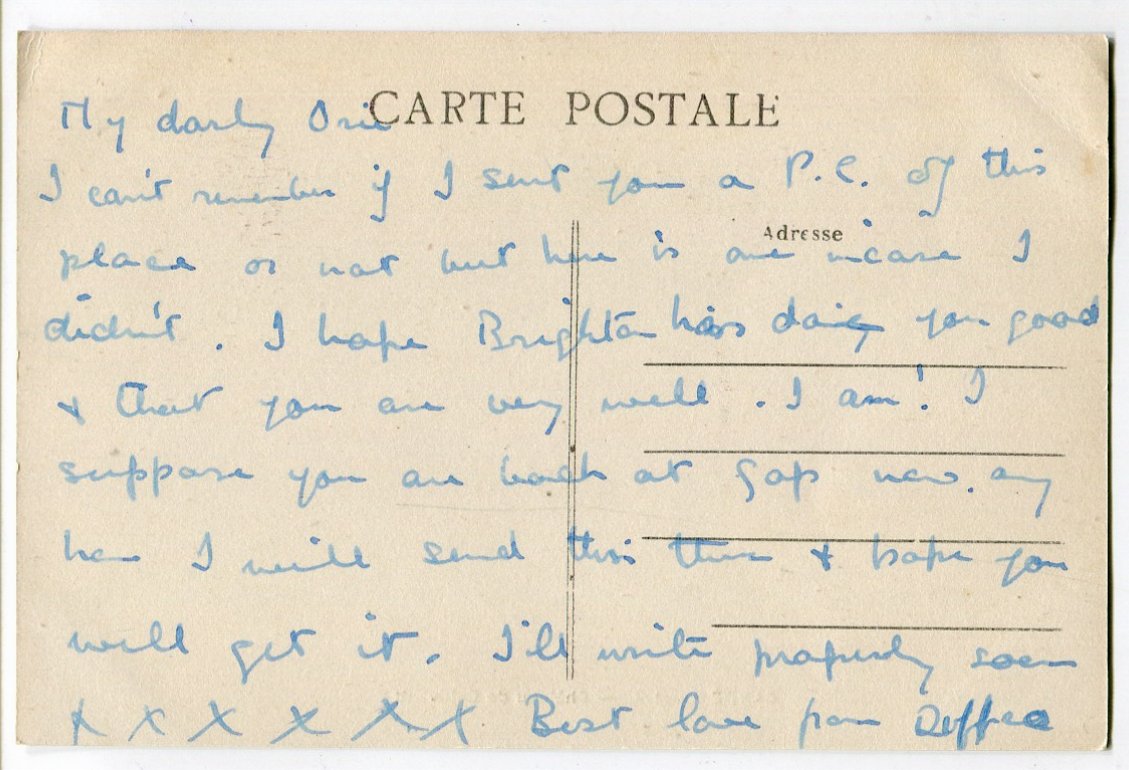 CARTE POSTALE
My darling
I can't remember if I sent you a P.C. of this
Adresse
place or not but here is one incase I
didn't. I hope Brighton has you good
& that you are very well. I am! I
suppose you are back at Gap now. any
how I will send this there & hope you
will get it. I'll write properly soon
x x x x x x Best love from